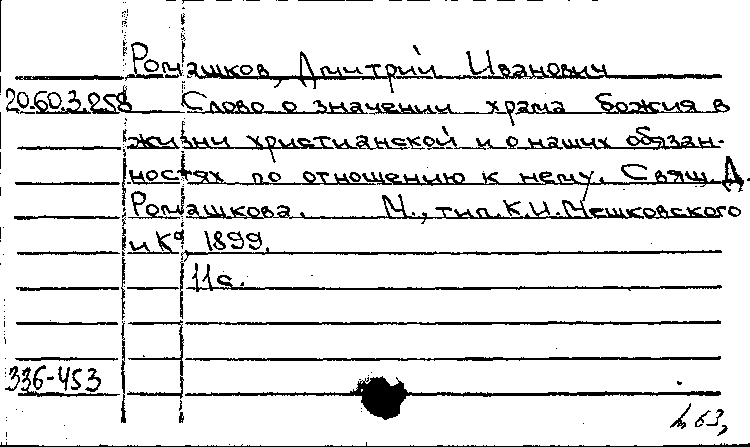 Ромашков, Дмитрий Иванович
20.60.3.258 Слово о значении храма божия в
жизни христианской и о наших обязан-
ностях по отношению к нему. Свящ. Д.
Ромашкова. М., тип. К.И. Мешковского
и Кº, 1899.
11с.
336-453
63,